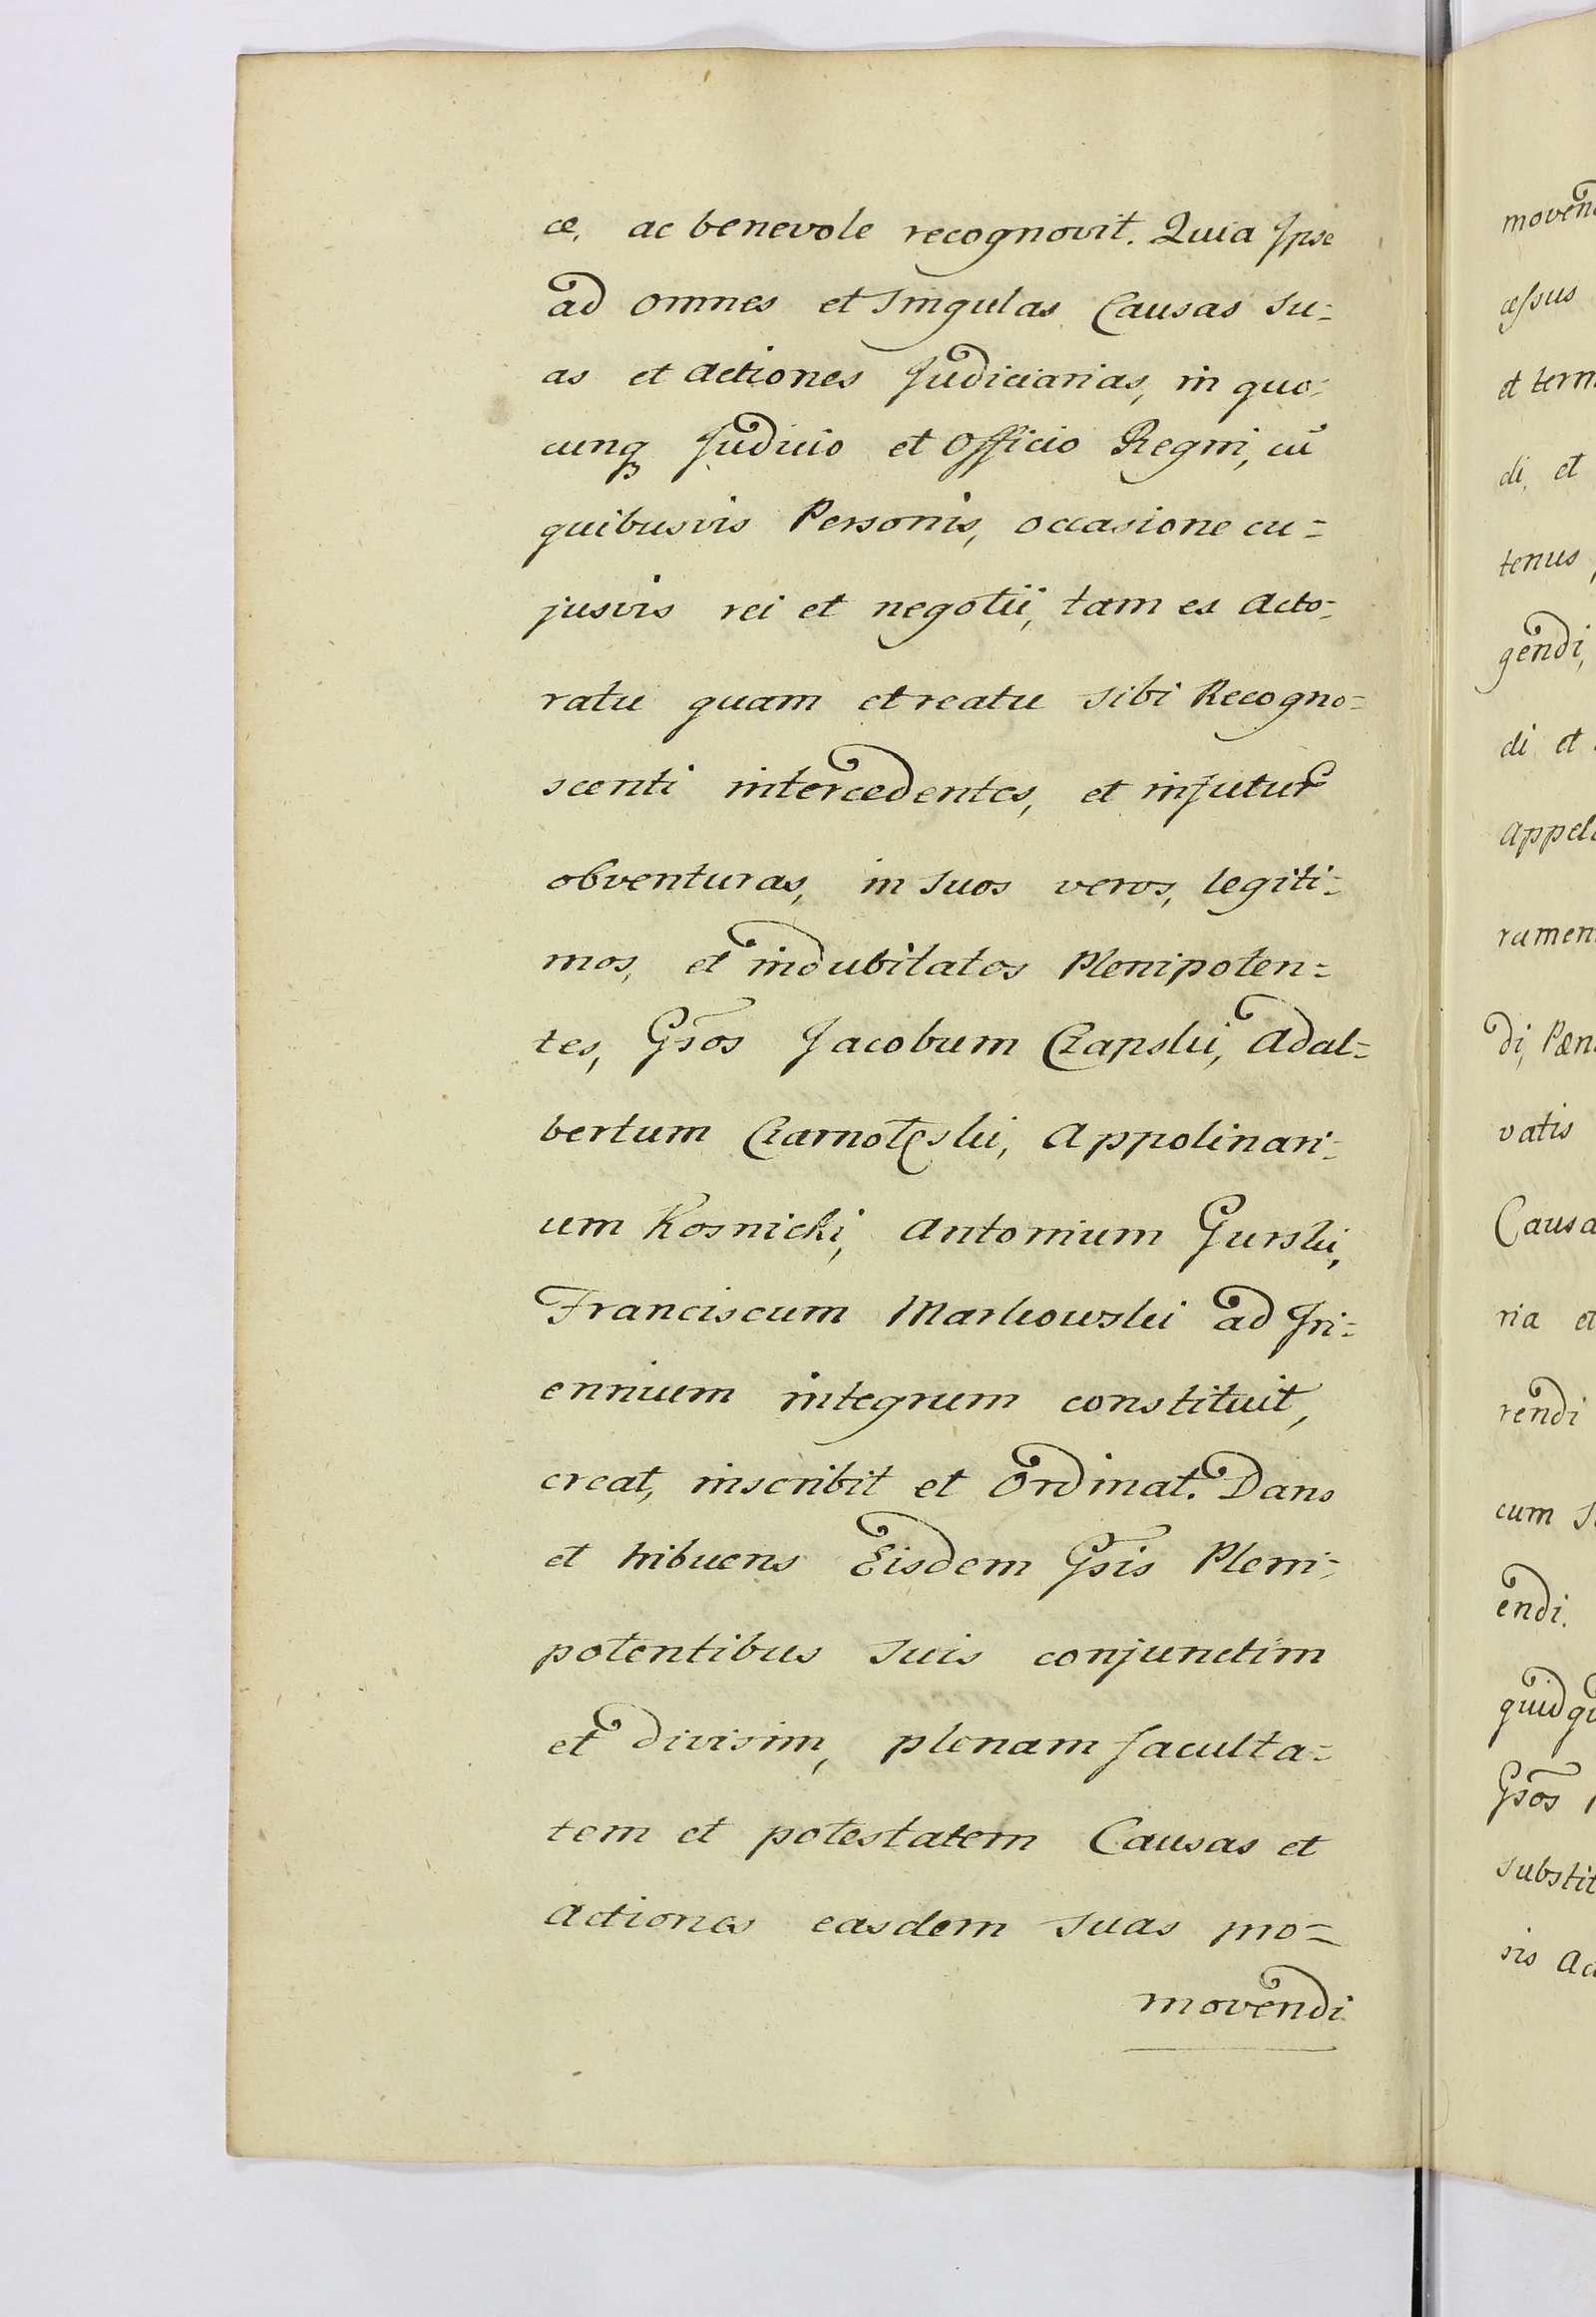 ce, ac benevole recognovit. Quia Ipse
ad omnes et singulas Causas su=
as et Actiones Judiciarias, in quo=
cunqꝫ Judicio et Officio Regni, cū
quibusvis Personis, occasione cu=
jusvis rei et negotii, tam ex Acto=
ratu quam et reatu sibi Recogno=
scenti intercedentes, et in futur̃
obventuras, in suos veros, legiti=
mos, et indubitatos Plenipoten=
tes, Gsos Jacobum Czapski, Adal=
bertum Appolinari=
um Kosnicki, Antonium Gurski,
Franciscum Markowski ad Tri=
ennium integrum constituit,
creat, inscribit et Ordinat. Dans
et tribuens Eisdem Gsis Pleni=
potentibus suis conjunctim
et divisim, plenam faculta=
tem et potestatem Causas et
Actiones easdem suas mo=
movendi
di et
tenus
gendi,
di et
vatis
ria et
rendi
cum
endi.
Gsos